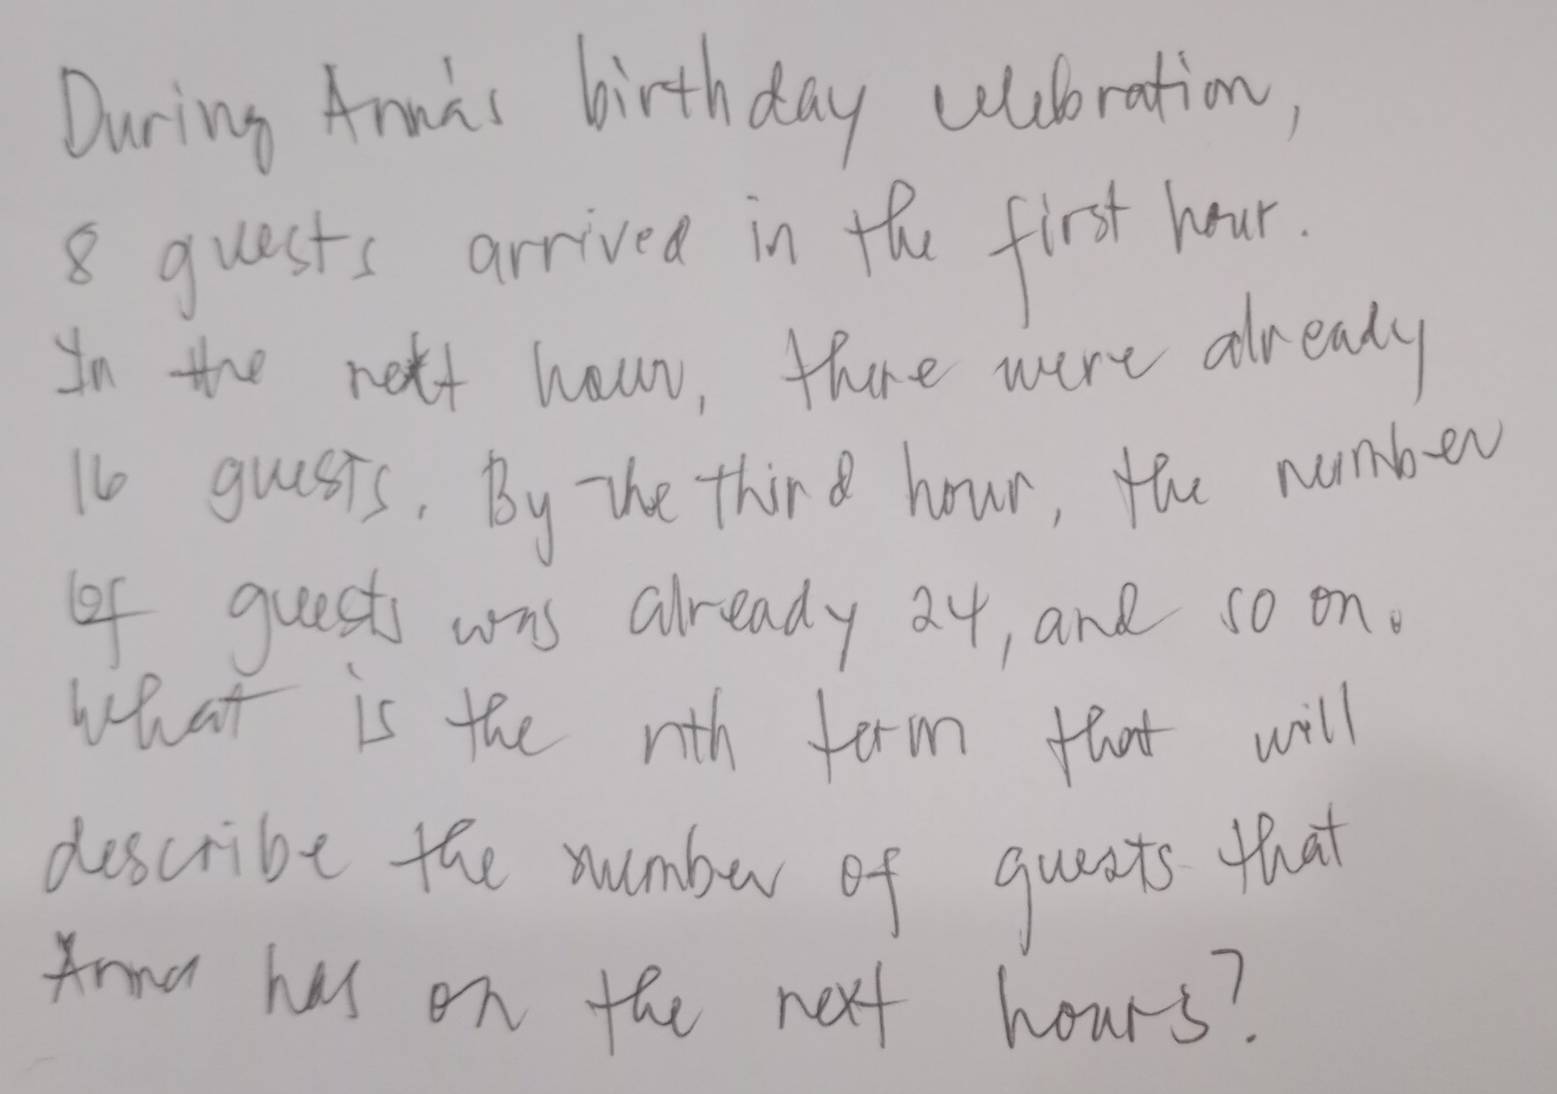 During Anna's birthday celebration,
8 guests arrived in the first hour.
In the next hour, there were already
16 guests. By the third hour, the number
of guests was already 24, and so on.
What is the nth term that will
describe the number of guests that
Anna has on the next hours?